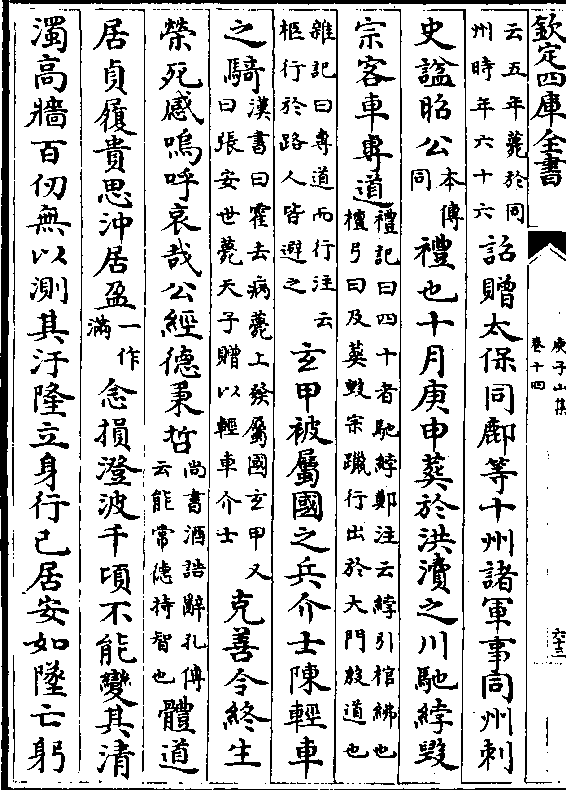 欽定四庫全書
庾子山集
卷十四
六十三
云五年薨於同
州時年六十六
詔贈太保同鄜等十州諸軍事同州刺
史諡昭公
本傳
同
禮也十月庚申葬於洪瀆之川馳綍毀
宗客車專道
禮記曰四十者馳綍鄭注云綍引棺紼也
檀弓曰及葬毀宗躐行出於大門放道也
雜記曰專道而行注云
柩行於路人皆避之
玄甲被屬國之兵介士陳輕車
之騎
漢書曰霍去病薨上發屬國玄甲又
曰張安世薨天子贈以輕車介士
克善令終生
榮死慼嗚呼哀哉公經德秉哲
尚書酒誥辭孔傳
云能常德持智也
體道
居貞履貴思沖居盈
一作
滿
念損澄波千頃不能變其清
濁高牆百仞無以測其汙隆立身行己居安如墜亡躬